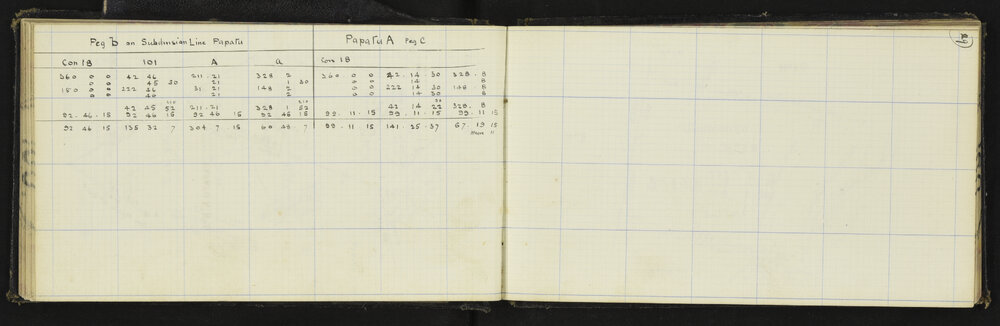 Peg b on Subdivision Line Papatu Papatu A Peg C 29
Con 18 101 A a Con 18
360 0 0 42 46 211.21 328 2 360 0 0 42.14.30 328.8
0 0 45 30 21 1 30 0 0 14 8
180 0 0 222 46 31 21 148 2 0 0 222 14 30 148.8
0 0 46 21 2 0 0 14 30 8
42 45 52 211.21 328 1 52 42 14 22 328.8
92.46.15 92 46 15 92 46 15 92 46 15 99.11.15 99.11.15 99.11 15
92 46 15 135 32 7 304 7 15 60 48 7 99.11 15 141.25.37 67.19 15